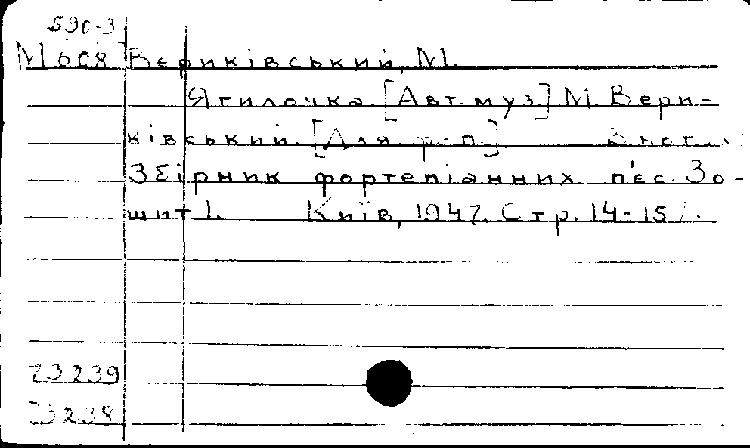 590-3
М668 Вериківський, М.
Ягилочка. [Авт. муз.] М. Вери-
ківський. [Для ф-п.]
Збірник фортепіанних п'єс. Зо-
шит I. Київ, 1947. Стр. 14-15.
23239
23238